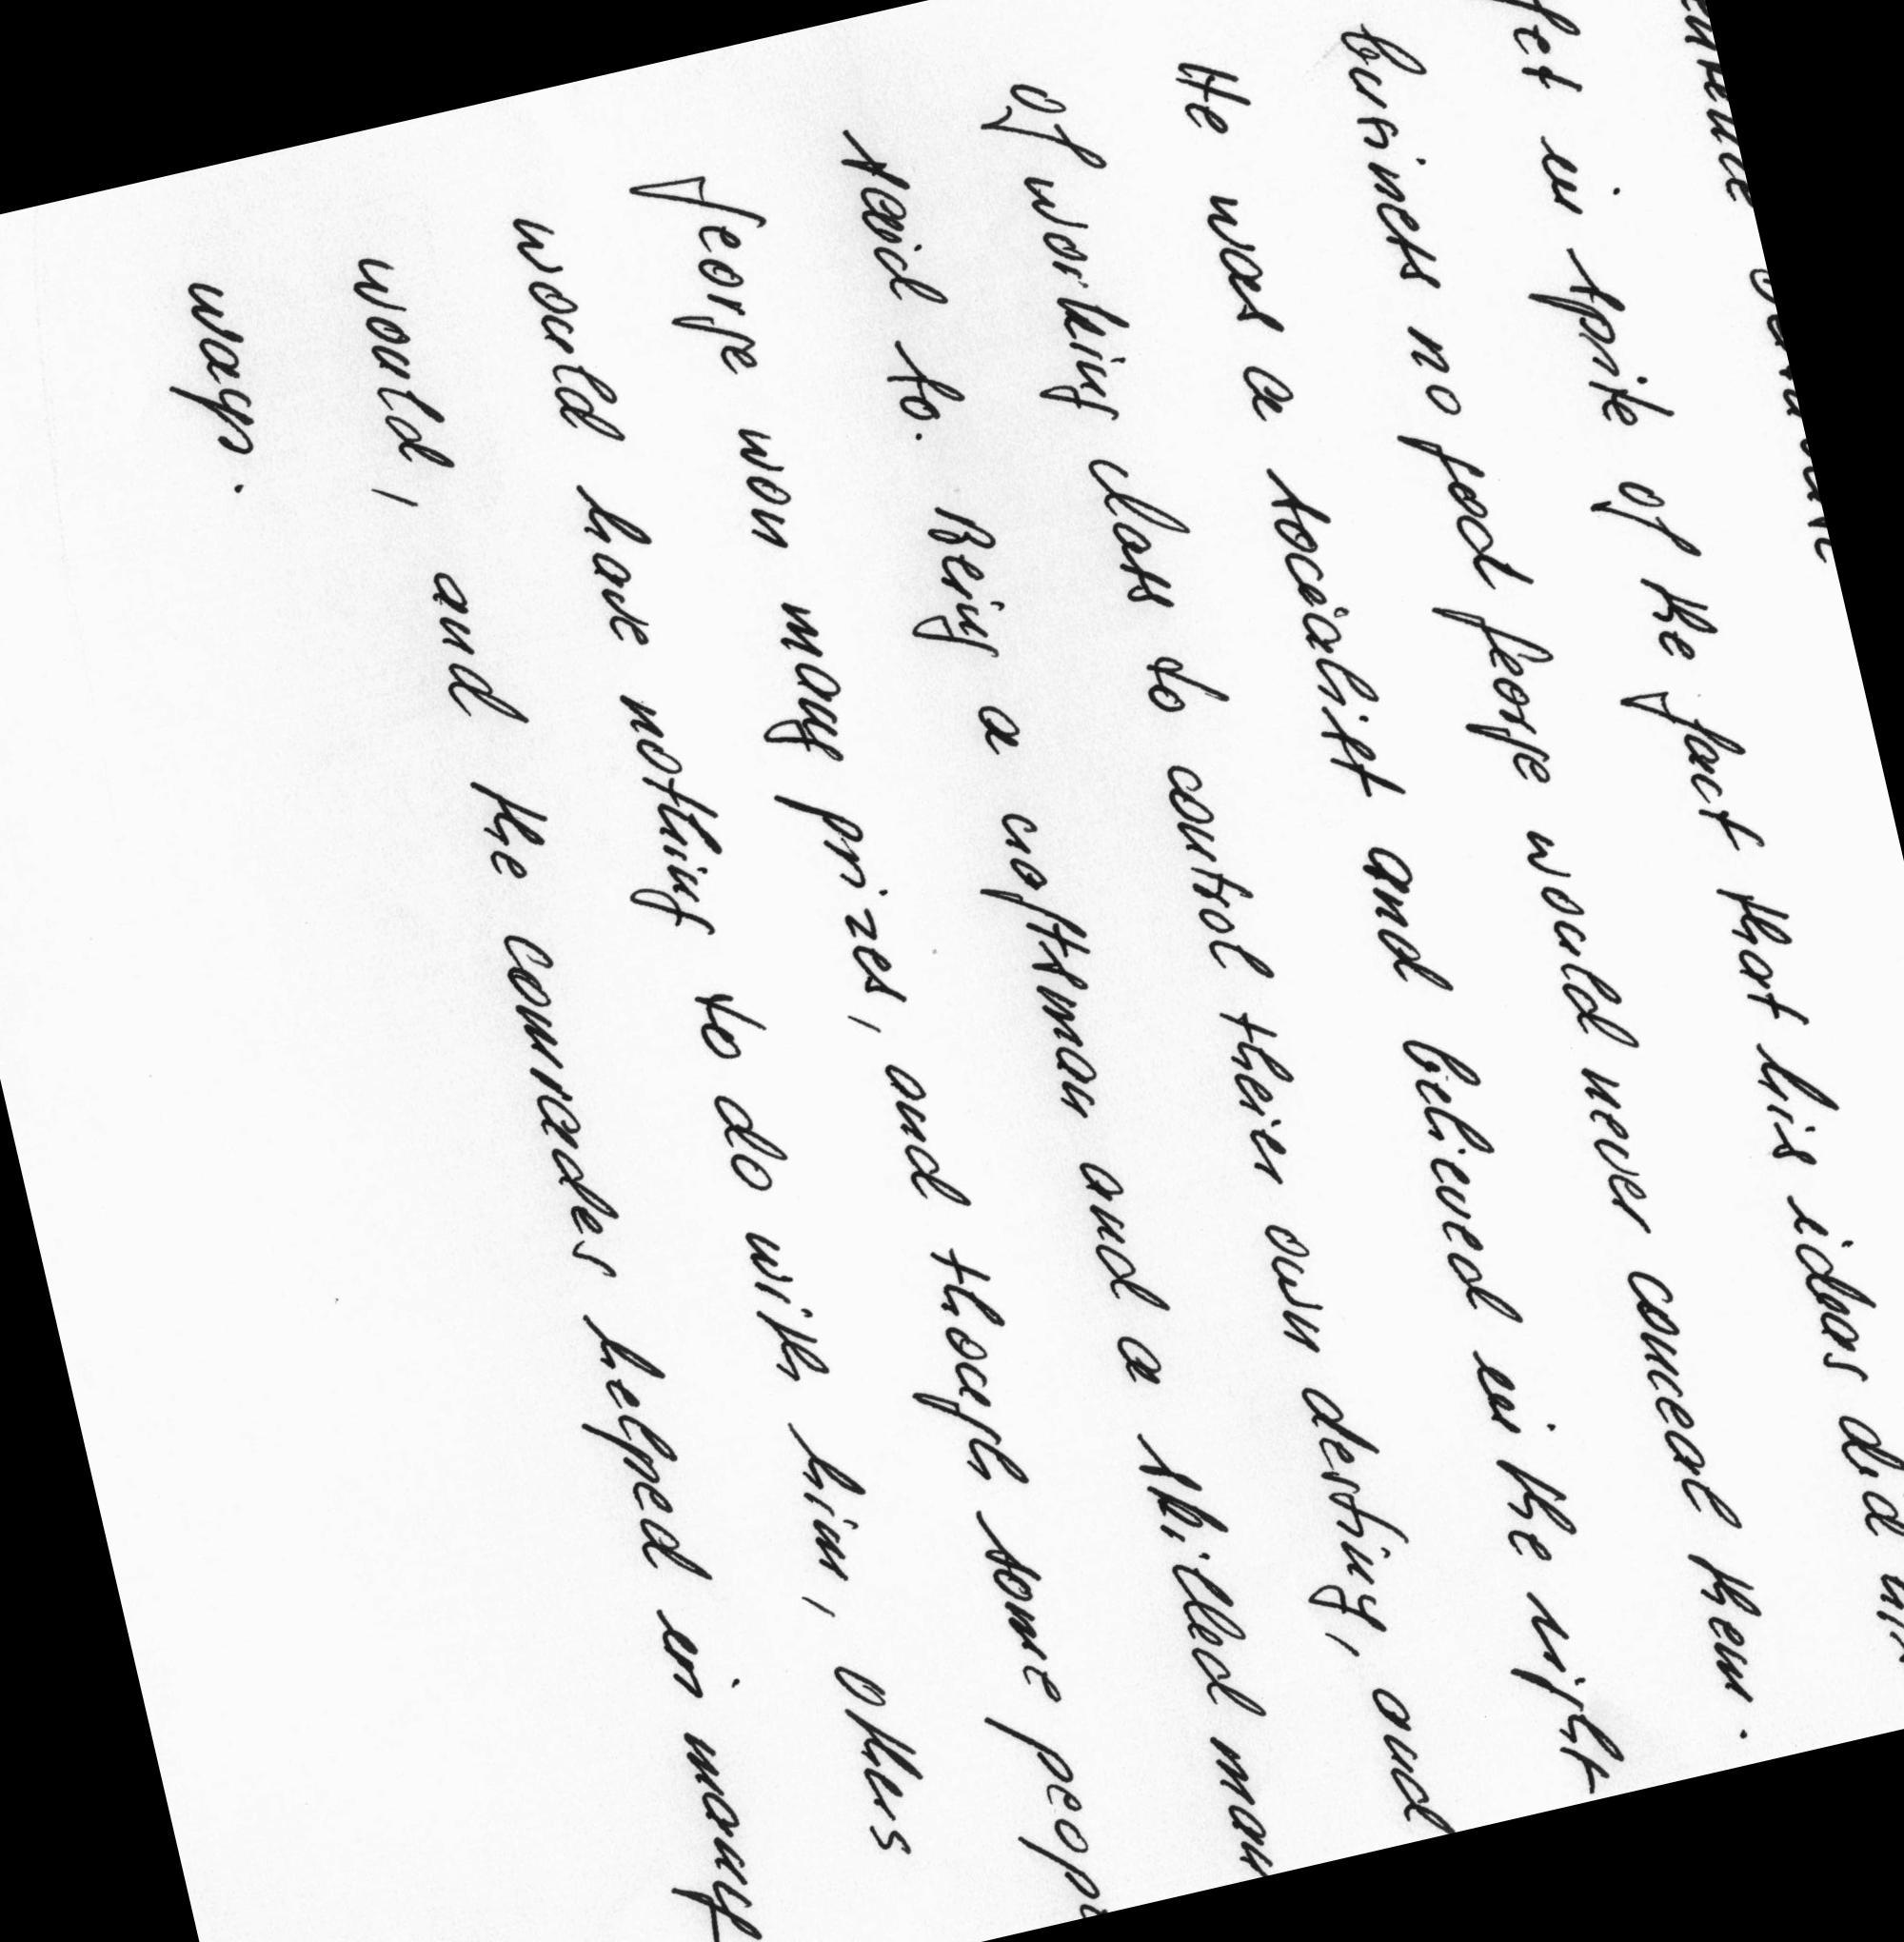 Yet in spite of the fact that his ideas did
business no good George would never conceal them.
He was a socialist and believed in the right
of working class to control their own destiny, and
said so. Being a craftsman and a skilled man
George won many prizes, and though some peop
would have nothing to do with him, others
would, and the comrades helped in many
ways.